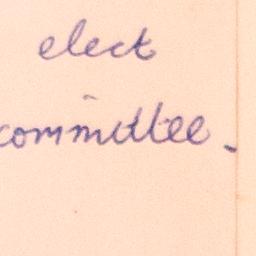 elect
committee.